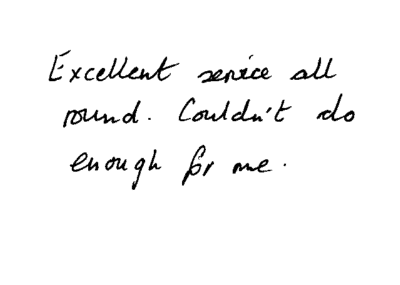 Excellent service all
round. Couldn't do
enough for me.